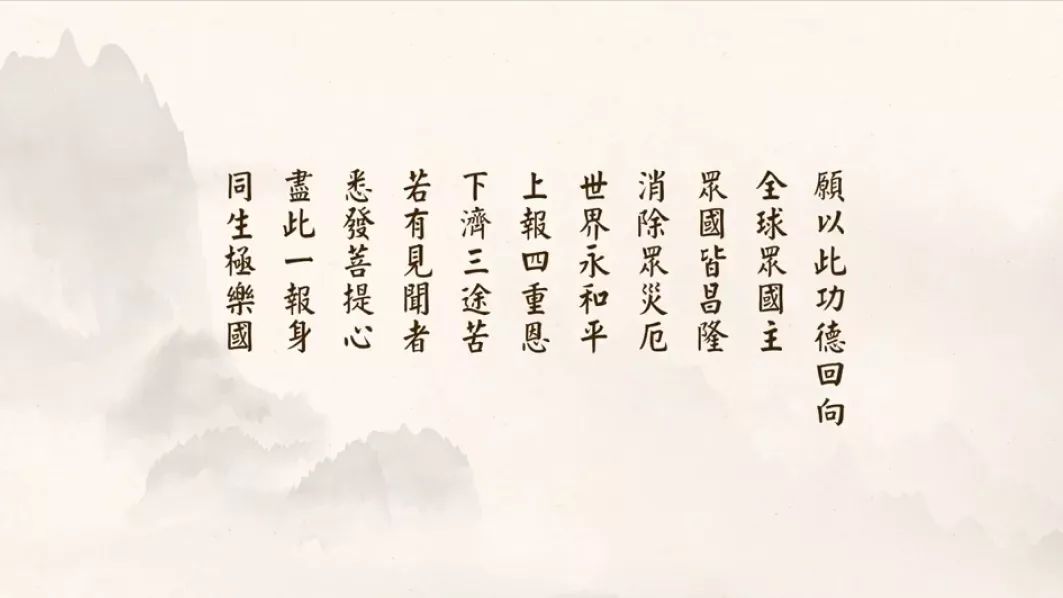 願以此功德回向
全球眾國主
眾國皆昌隆
消除眾災厄
世界永和平
上報四重恩
下濟三途苦
若有見聞者
悉發菩提心
盡此一報身
同生極樂國